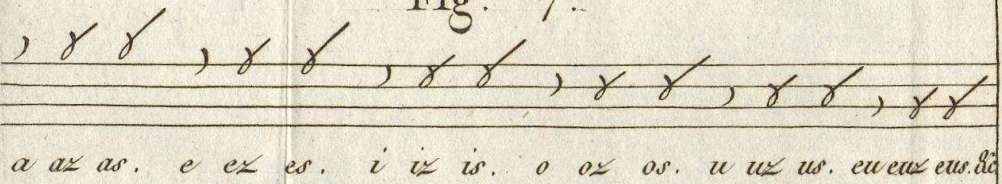 Fig. 7.
a az as. e ez es. i iz is. o oz os. u uz us. eu euz eus. &c